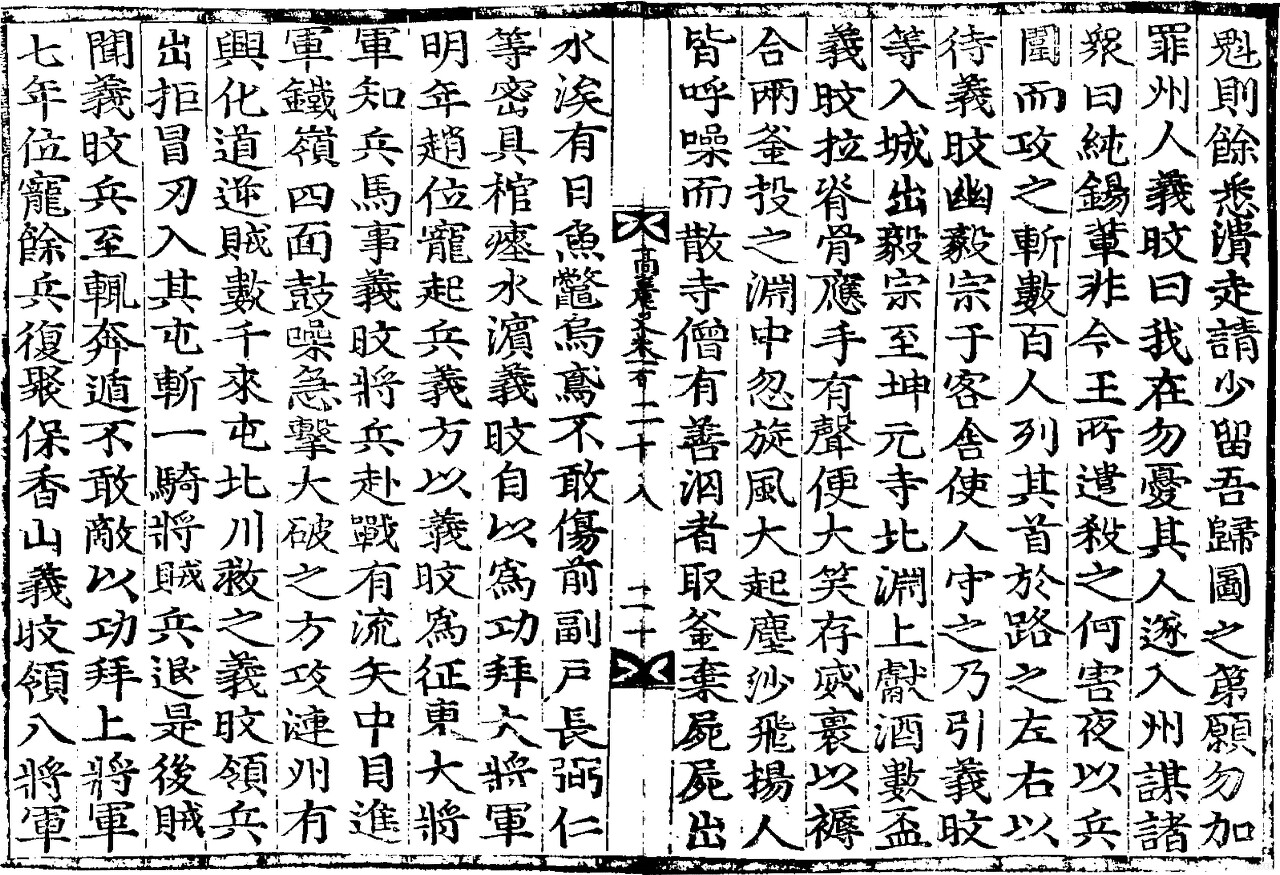 魁則餘悉潰走請少留吾歸圖之第願勿加
罪州人義旼曰我在勿憂其人遂入州謀諸
衆曰純錫軰非今王所遣殺之何害夜以兵
圍而攻之斬數百人列其首於路之左右以
待義旼幽毅宗于客舎使人守之乃引義旼
等入城出毅宗至坤元寺北淵上獻酒數盃
義旼拉脊骨應手有聲便大笑存威裹以褥
合兩釜投之淵中忽旋風大起塵沙飛揚人
皆呼噪而散寺僧有善泅者取釜棄屍屍出
高麗史卷一百二十八　二十
水涘有日魚鼈烏鳶不敢傷前副戶長弼仁
等密具棺瘞水濱義旼自以爲功拜大將軍
明年趙位寵起兵義方以義旼爲征東大將
軍知兵馬事義旼將兵赴戰有流矢中目進
軍鐵嶺四面鼓噪急擊大破之方攻漣州有
興化道逆賊數千來屯北川救之義旼領兵
出拒冒刃入其屯斬一騎將賊兵退是後賊
聞義旼兵至輒奔遁不敢敵以功拜上將軍
七年位寵餘兵復聚保香山義旼領八將軍